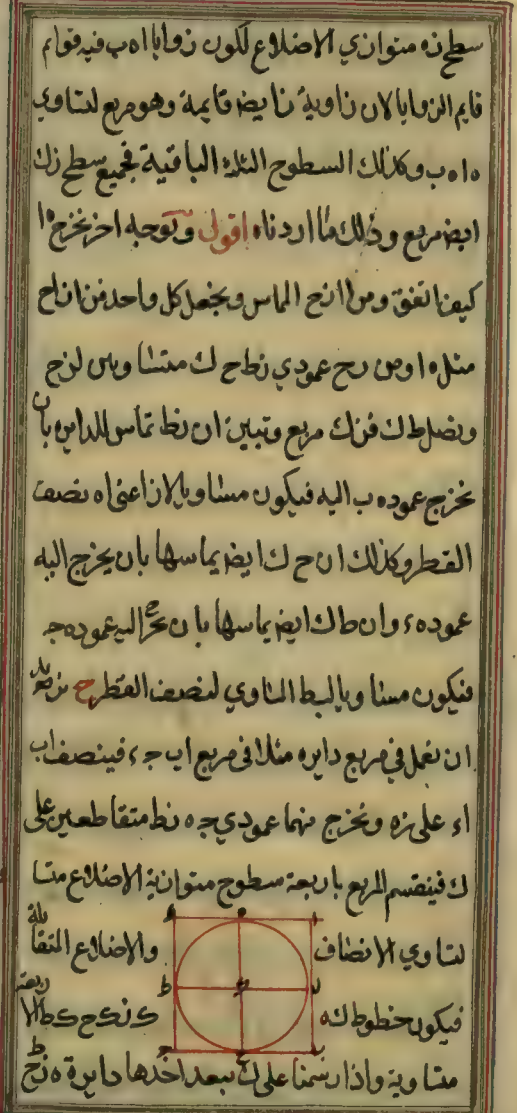 سطح زه متوازي الاضلاع لكون زوايا اه ب فيه قوائم
قايم الزوايا لان زاوية ز ايضا قايمة وهو مربع لتساوي
ه اه ب وكذلك السطوح الثلثة الباقية فجميع سطح زك
ايض مربع وذلك ما اردناه اقول وبوجه اخر نخرج ه ا
كيف اتفق ومن ا ازح المماس ونجعل كل واحد من ازاح
مثل ه ا ومن رح عمودي زط ح ك متساويين لزح
ونصل ط ك فزك مربع وتبين ان زط تماس للدايره بان
نخرج عمود ه ب اليه فيكون مساويا لاز اعنى اه نصف
القطر وكذلك ان ح ك ايض يماسها بان يخرج اليه
عمود ه ء وان ط ك ايض يماسها بان نخرج اليه عمود ه جـ
فيكون مساويا لبط المساوي لنصف القطر ح نريد
ان نعمل في مربع دايره مثلا في مربع اب جـ ء فينصف اب
اء على زه ونخرج منهما عمودي حه زط متقاطعين على
ك فينقسم المربع باربعة سطوح متوازية الاضلاع متسا
لتساوي الانصاف والاضلاع المتقابلة
فيكون خطوط كه كز كح كط الاربعة
متساوية واذا رسمنا على ك ببعد احدها دايرة ه زح ط